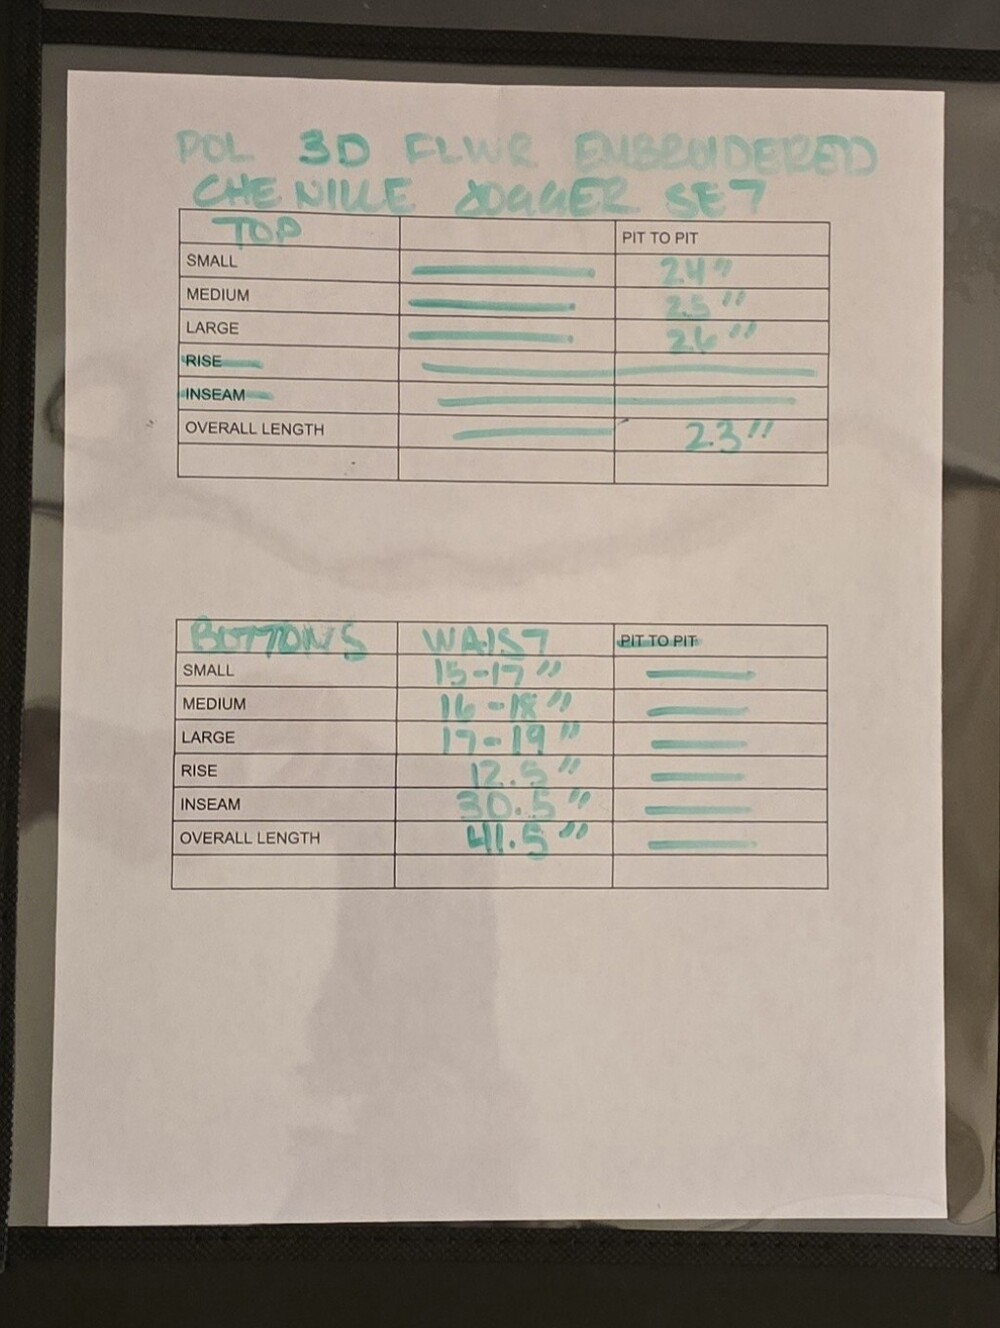 POL 3D FLWR EMBROIDERED
CHENILLE JOGGER SET
TOP PIT TO PIT
SMALL 24"
MEDIUM 25"
LARGE 26"
RISE
INSEAM
OVERALL LENGTH 23"
BOTTOMS WAIST PIT TO PIT
SMALL 15-17"
MEDIUM 16-18"
LARGE 17-19"
RISE 12.5"
INSEAM 30.5"
OVERALL LENGTH 41.5"